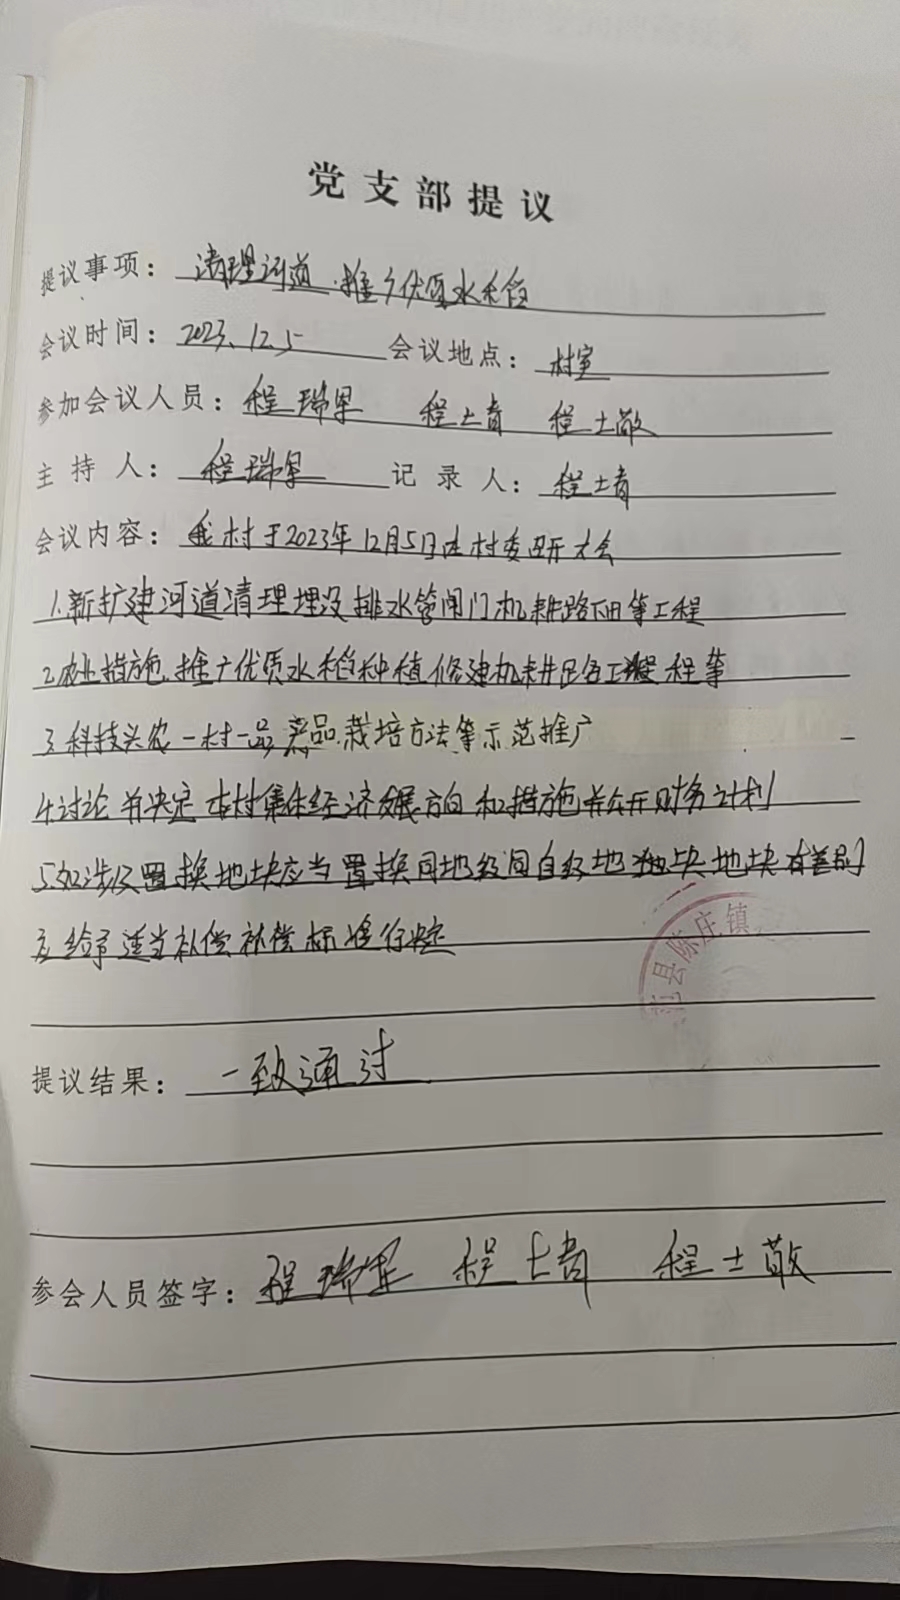 党支部提议
提议事项：清理河道.推广优质水稻
会议时间：2023.12.5 会议地点：村室
参加会议人员：程瑞军 程士青 程士敬
主持人：程瑞军 记录人：程士青
会议内容：我村于2023年12月5日在村委召开大会
1.新扩建河道清理埋设排水管闸门机耕路面等工程
2.农业措施.推广优质水稻种植修建机耕路工程等
3.科技兴农一村一品产品.栽培方法等示范推广
4.讨论并决定本村集体经济发展方向和措施并公开财务计划
5.如涉及置换地块应当置换同地级同自级地块地块有差别
应给予适当补偿补偿标准行决定
县陈庄镇
提议结果：一致通过
参会人员签字：程瑞军 程士青 程士敬